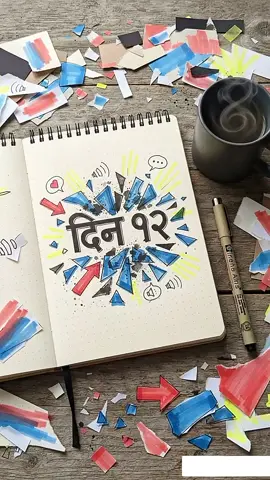 दिन १२